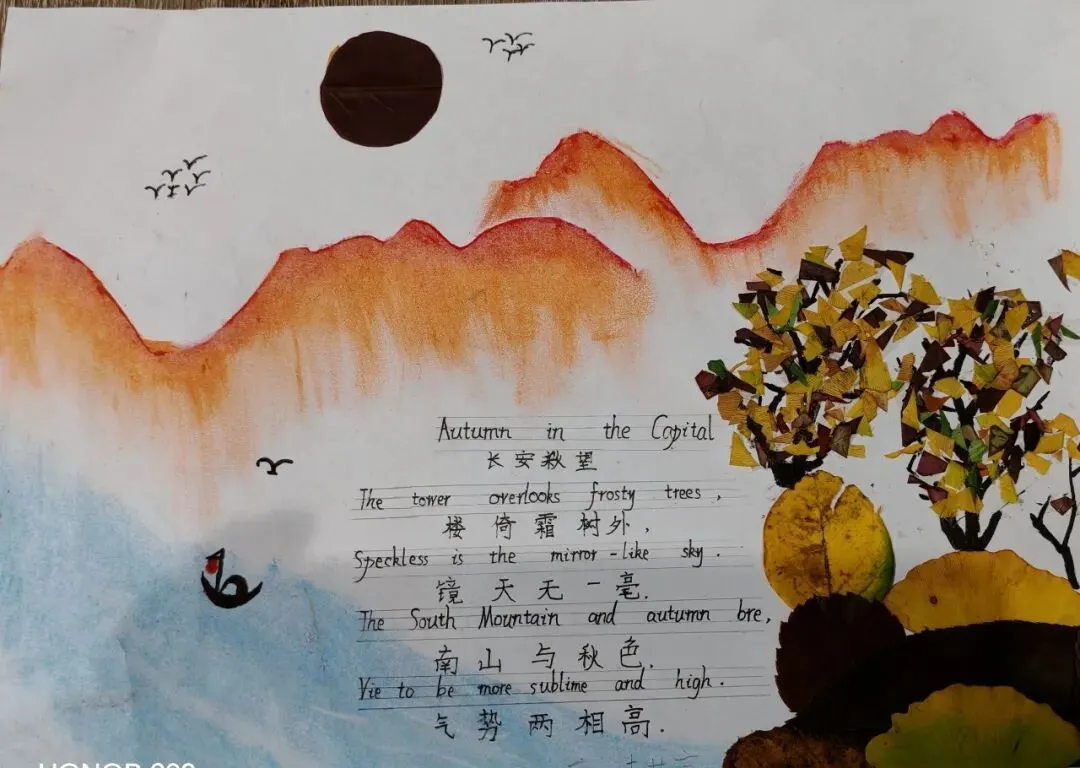 Autumn in the Capital
长安秋望
The tower overlooks frosty trees,
楼倚霜树外,
Speckless is the mirror-like sky.
镜天无一毫.
The South Mountain and autumn bre,
南山与秋色.
Vie to be more sublime and high.
气势两相高.